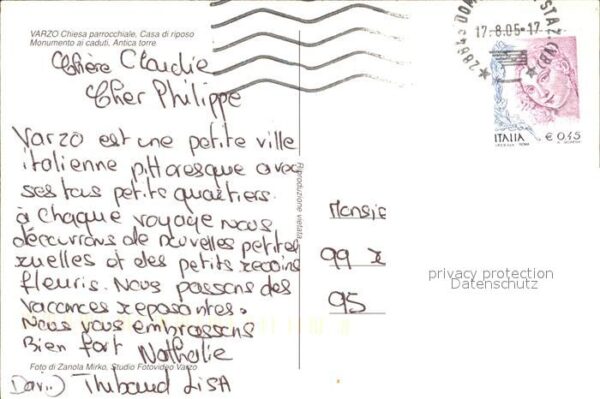 VARZO Chiesa parrocchiale, Casa di riposo
Monumento ai caduti, Antica torre
Chère Claudie
Cher Philippe
Varzo est une petite ville
italienne pittoresque avec
ses tous petits quartiers.
à chaque voyage nous
découvrons de nouvelles petites
ruelles et des petits recoins
fleuris. Nous passons des
vacances reposantes.
Nous vous embrassons
Bien fort Nathalie
David Thibaud LiSA
Foto di Zanola Mirko, Studio Fotovideo Varzo
Riproduzione vietata
17.8.05-17
ITALIA € 0,45
Monsie
99 r
95
privacy protection
Datenschutz